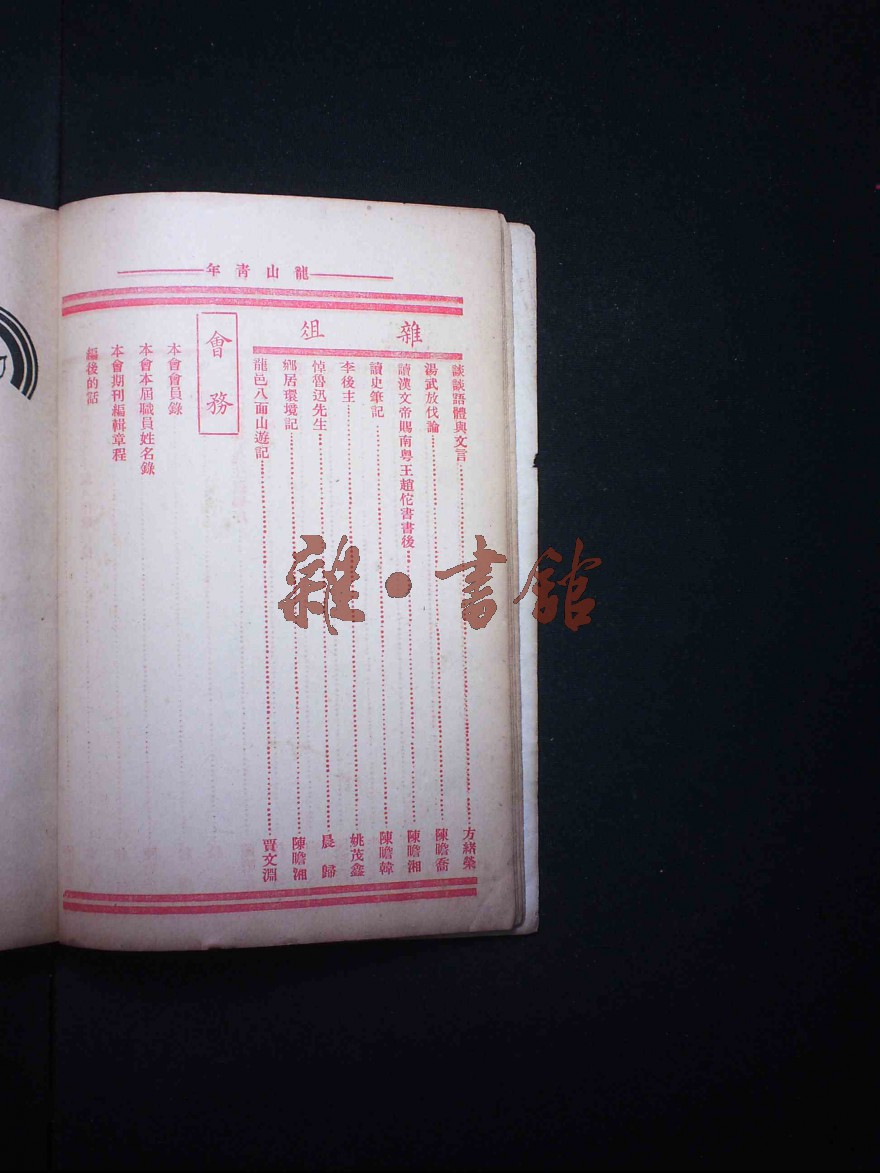 龍山青年
雜俎
談談語體與文言 方緒榮
湯武放伐論 陳瞻喬
讀漢文帝賜南粤王趙佗書書後 陳瞻湘
讀史筆記 陳瞻韓
李後主 姚茂鑫
悼魯迅先生 晨歸
鄉居環境記 陳瞻湘
龍邑八面山遊記 賈文淵
會務
本會會員錄
本會本屆職員姓名錄
本會期刊編輯章程
編後的話
雜·書館